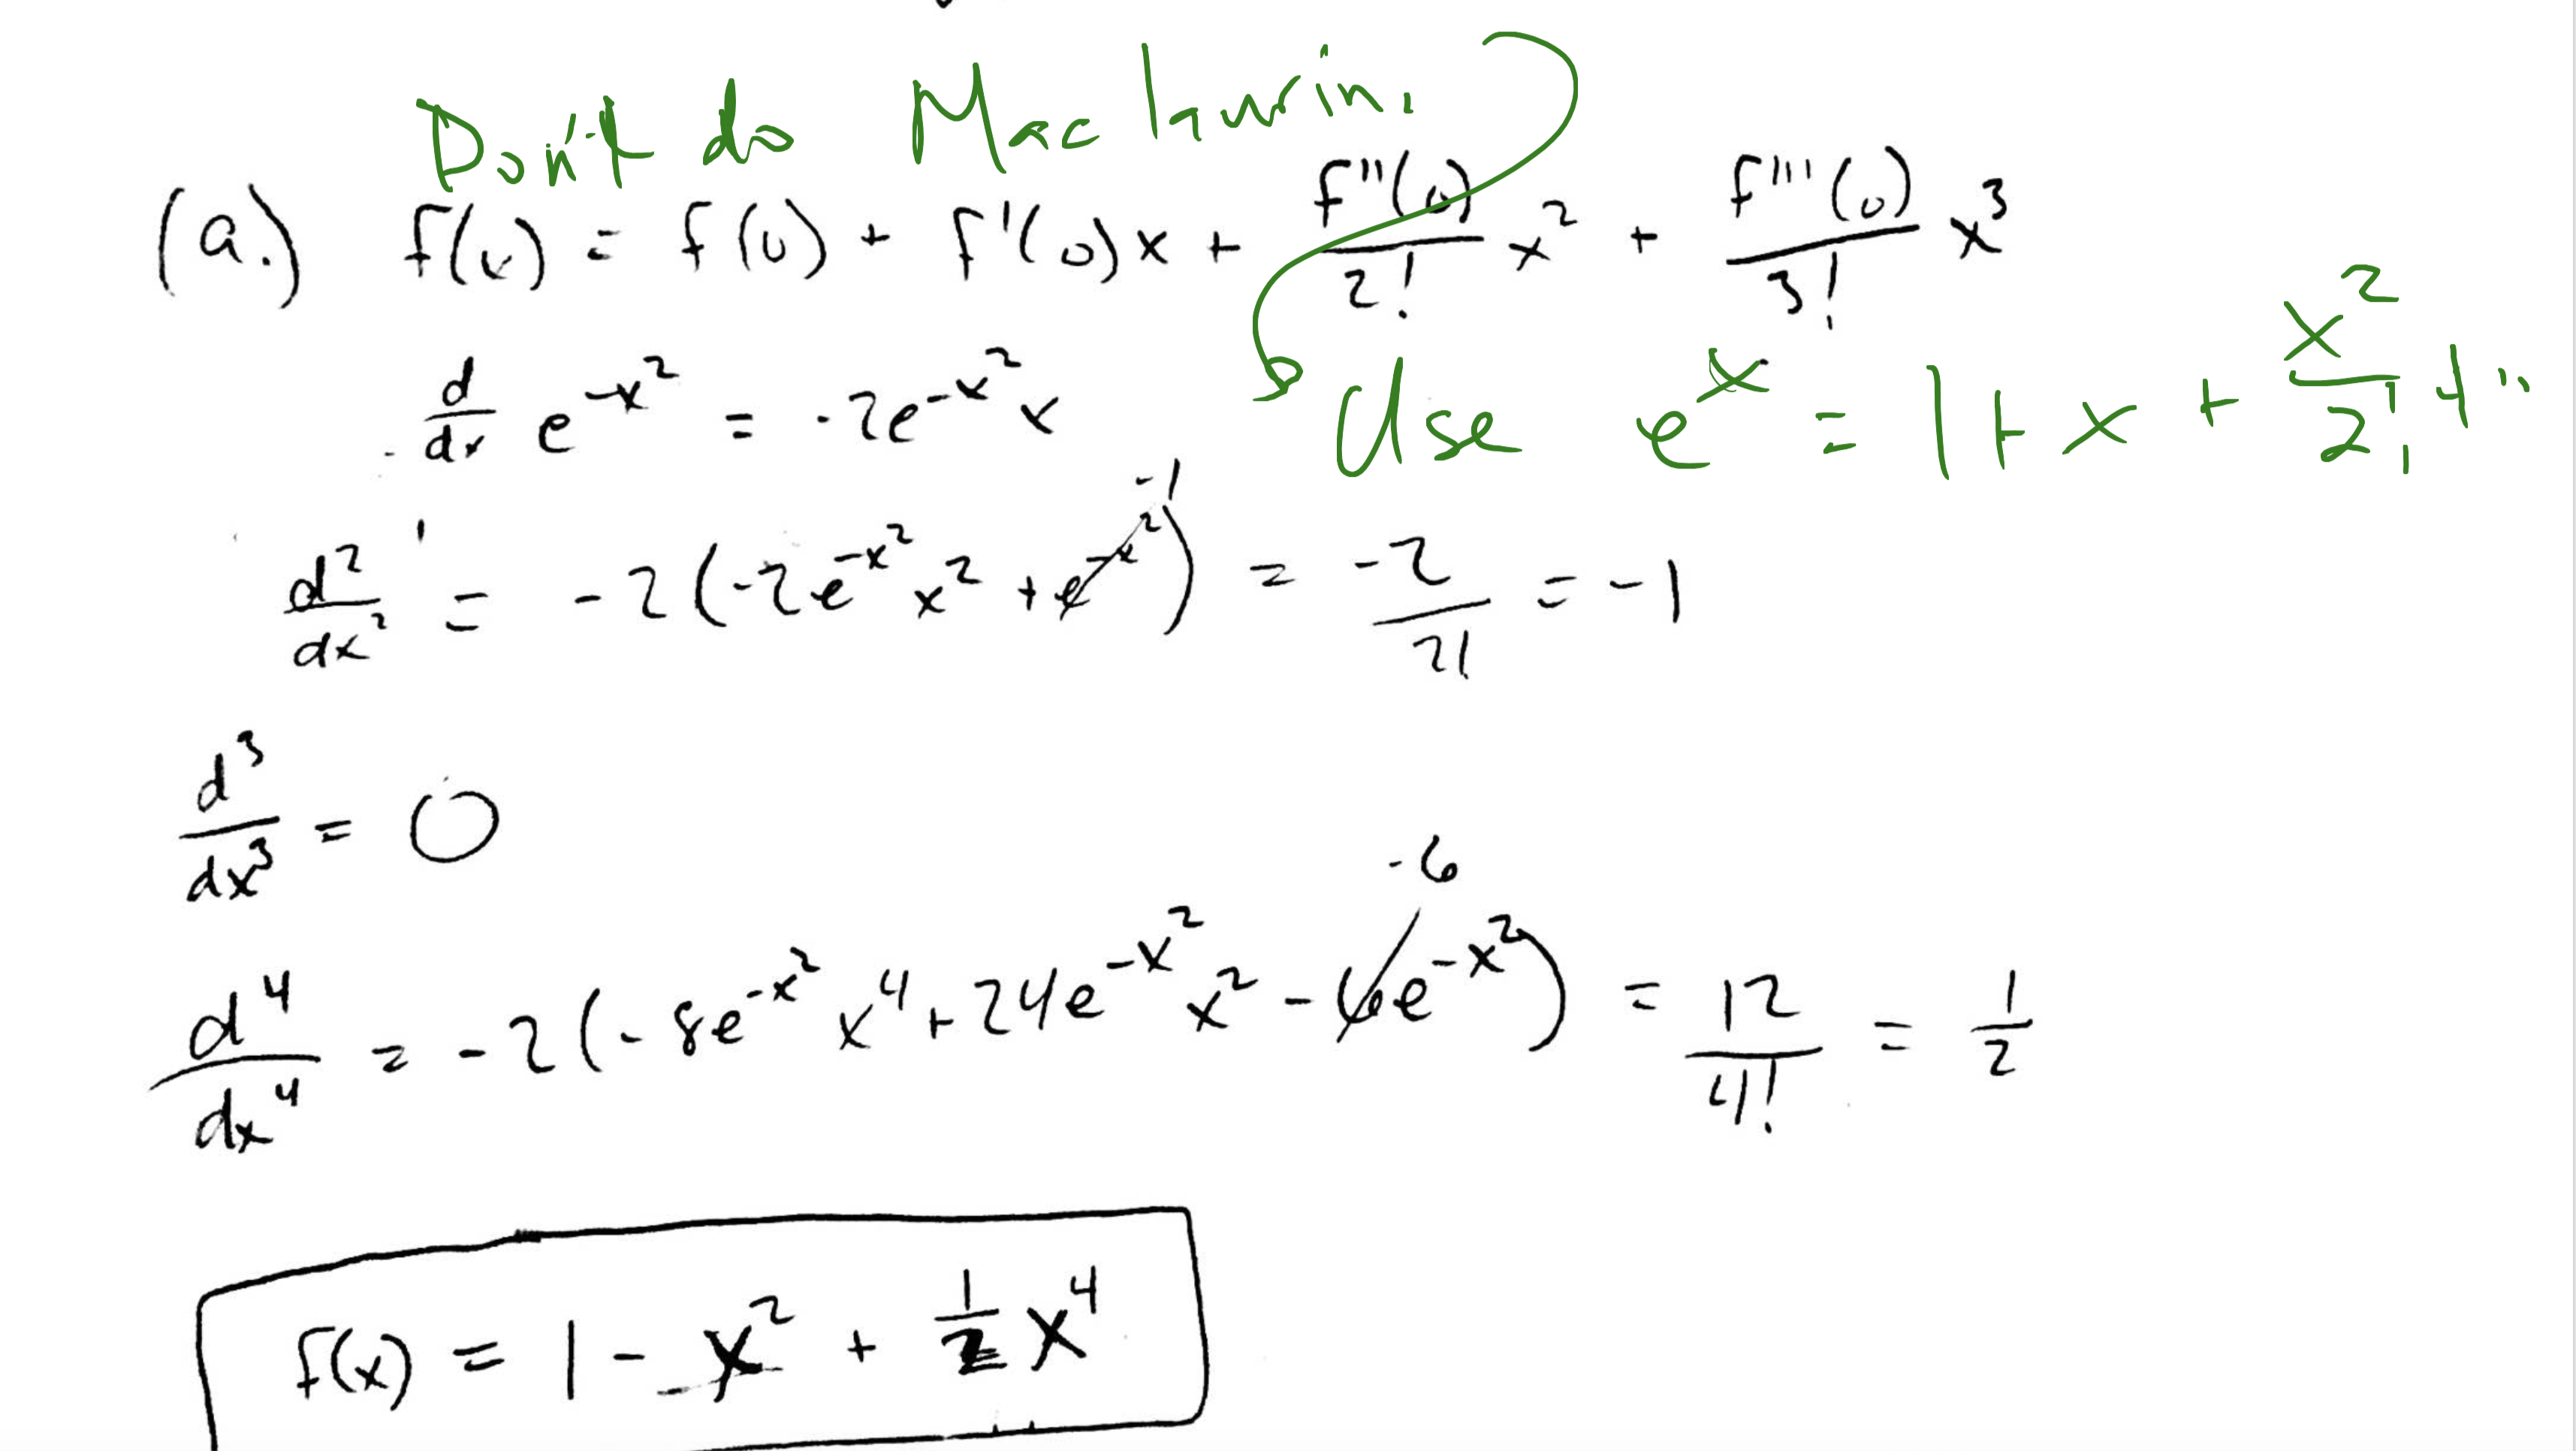 Don't do Maclaurin.
(a.) f(x) = f(0) + f'(0)x + f''(0)/2! x² + f'''(0)/3! x³
Use eˣ = 1 + x + x²/2! + ..
d/dx e^-x² = -2e^-x² x
d²/dx² = -2(-2e^-x² x² + e^-x²) -1 = -2/2! = -1
d³/dx³ = 0
-6
d⁴/dx⁴ = -2(-8e^-x² x⁴ + 24e^-x² x² - 6e^-x²) = 12/4! = 1/2
f(x) = 1 - x² + 1/2 x⁴